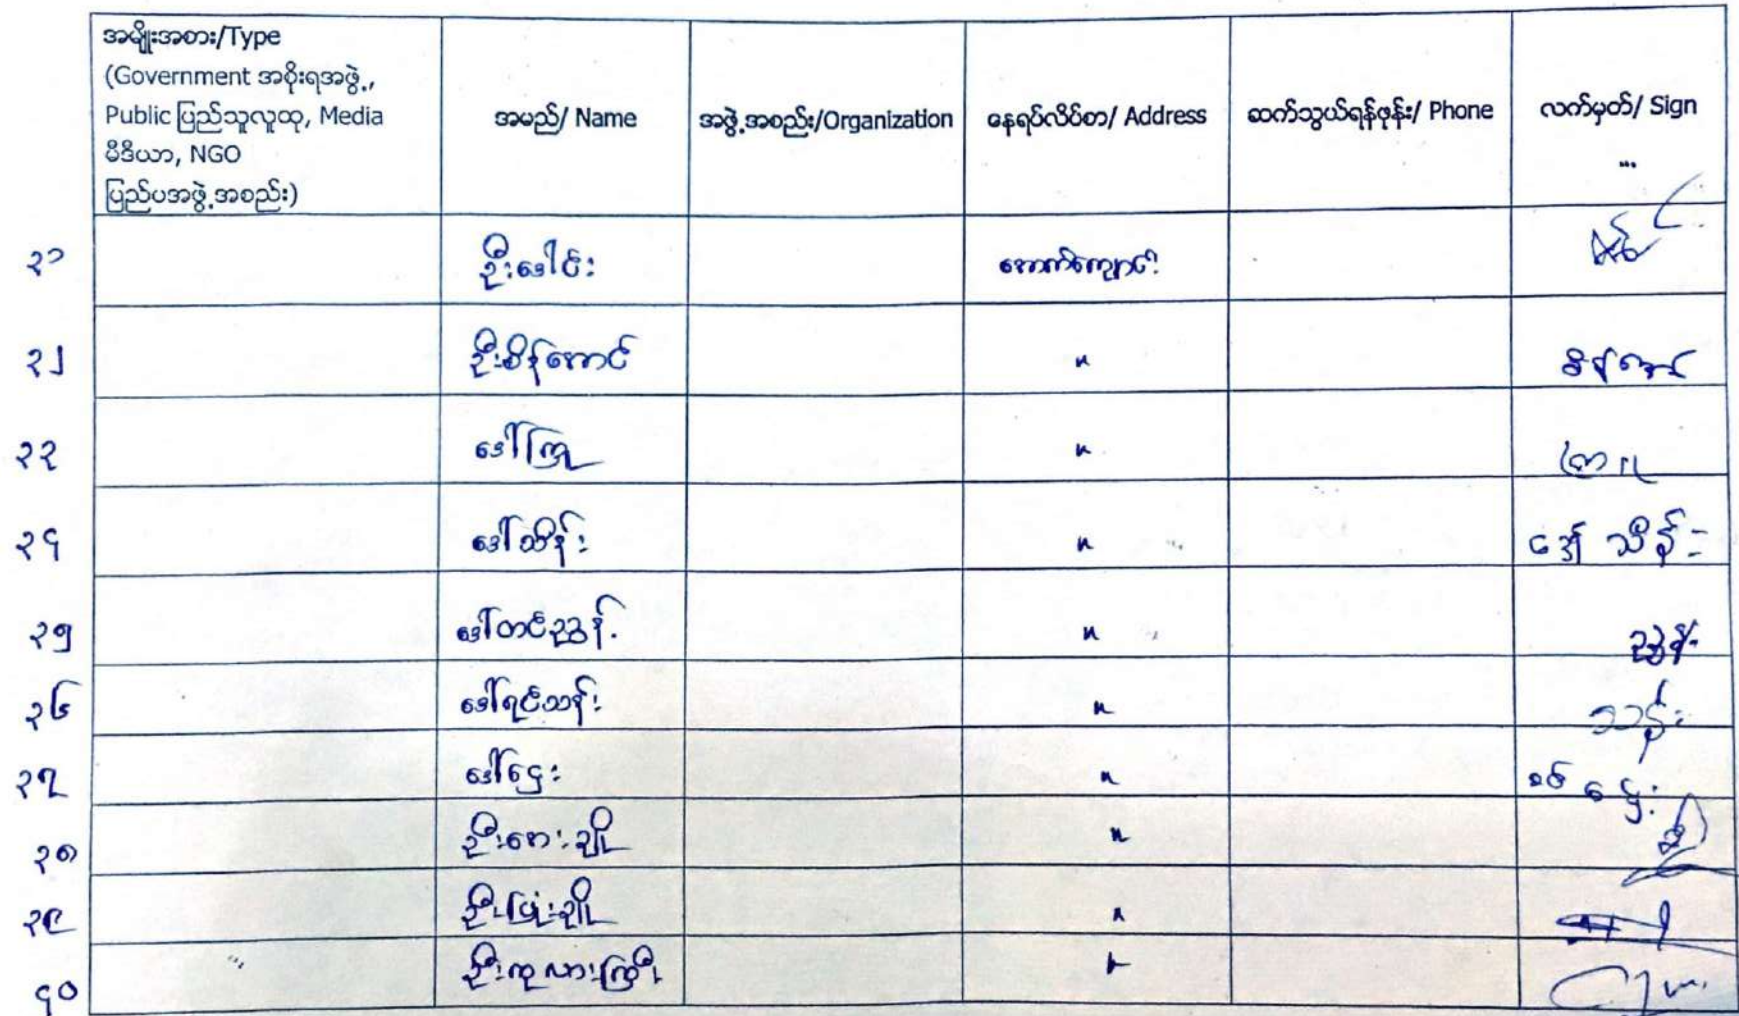 အမျိုးအစား/Type
(Government အစိုးရအဖွဲ့,
Public ပြည်သူလူထု, Media
မီဒီယာ, NGO
ပြည်ပအဖွဲ့အစည်း)
အမည်/ Name
အဖွဲ့အစည်း/Organization
နေရပ်လိပ်စာ/ Address
ဆက်သွယ်ရန်ဖုန်း/ Phone
လက်မှတ်/ Sign
...
၂၁ ဦးဒေါင်း အောက်ကျောင်း
၂၂ ဦးစိန်အောင် " စိန်အောင်
၂၃ ဒေါ်ကြူ " ကြူ
၂၄ ဒေါ်သိန်း " ဒေါ်သိန်း
၂၅ ဒေါ်တင်ညွန့် " ညွန့်
၂၆ ဒေါ်ရင်သန်း " သန်း
၂၇ ဒေါ်ဌေး " ဌေး
၂၈ ဦးစားချို "
၂၉ ဦးဖြုံးချို "
၃၀ ဦးကုလားကြီး "